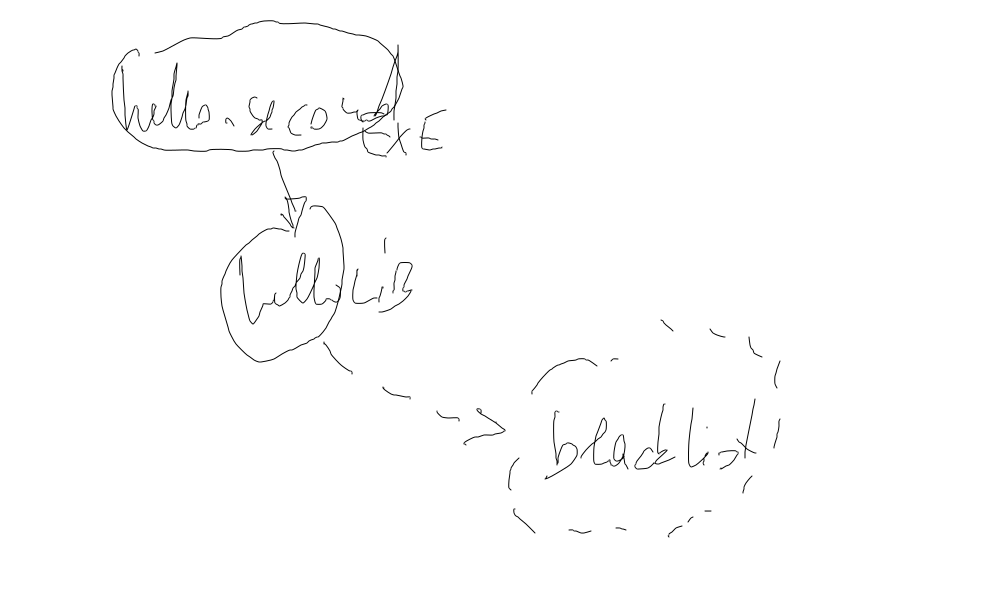 hello.second
EXE
hello LiB
blacklist